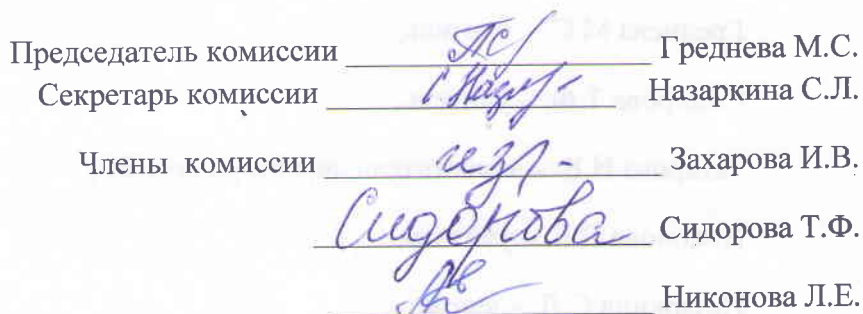 Председатель комиссии Греднева М.С.
Секретарь комиссии Назаркина С.Л.
Члены комиссии Захарова И.В.
Сидорова Сидорова Т.Ф.
Никонова Л.Е.